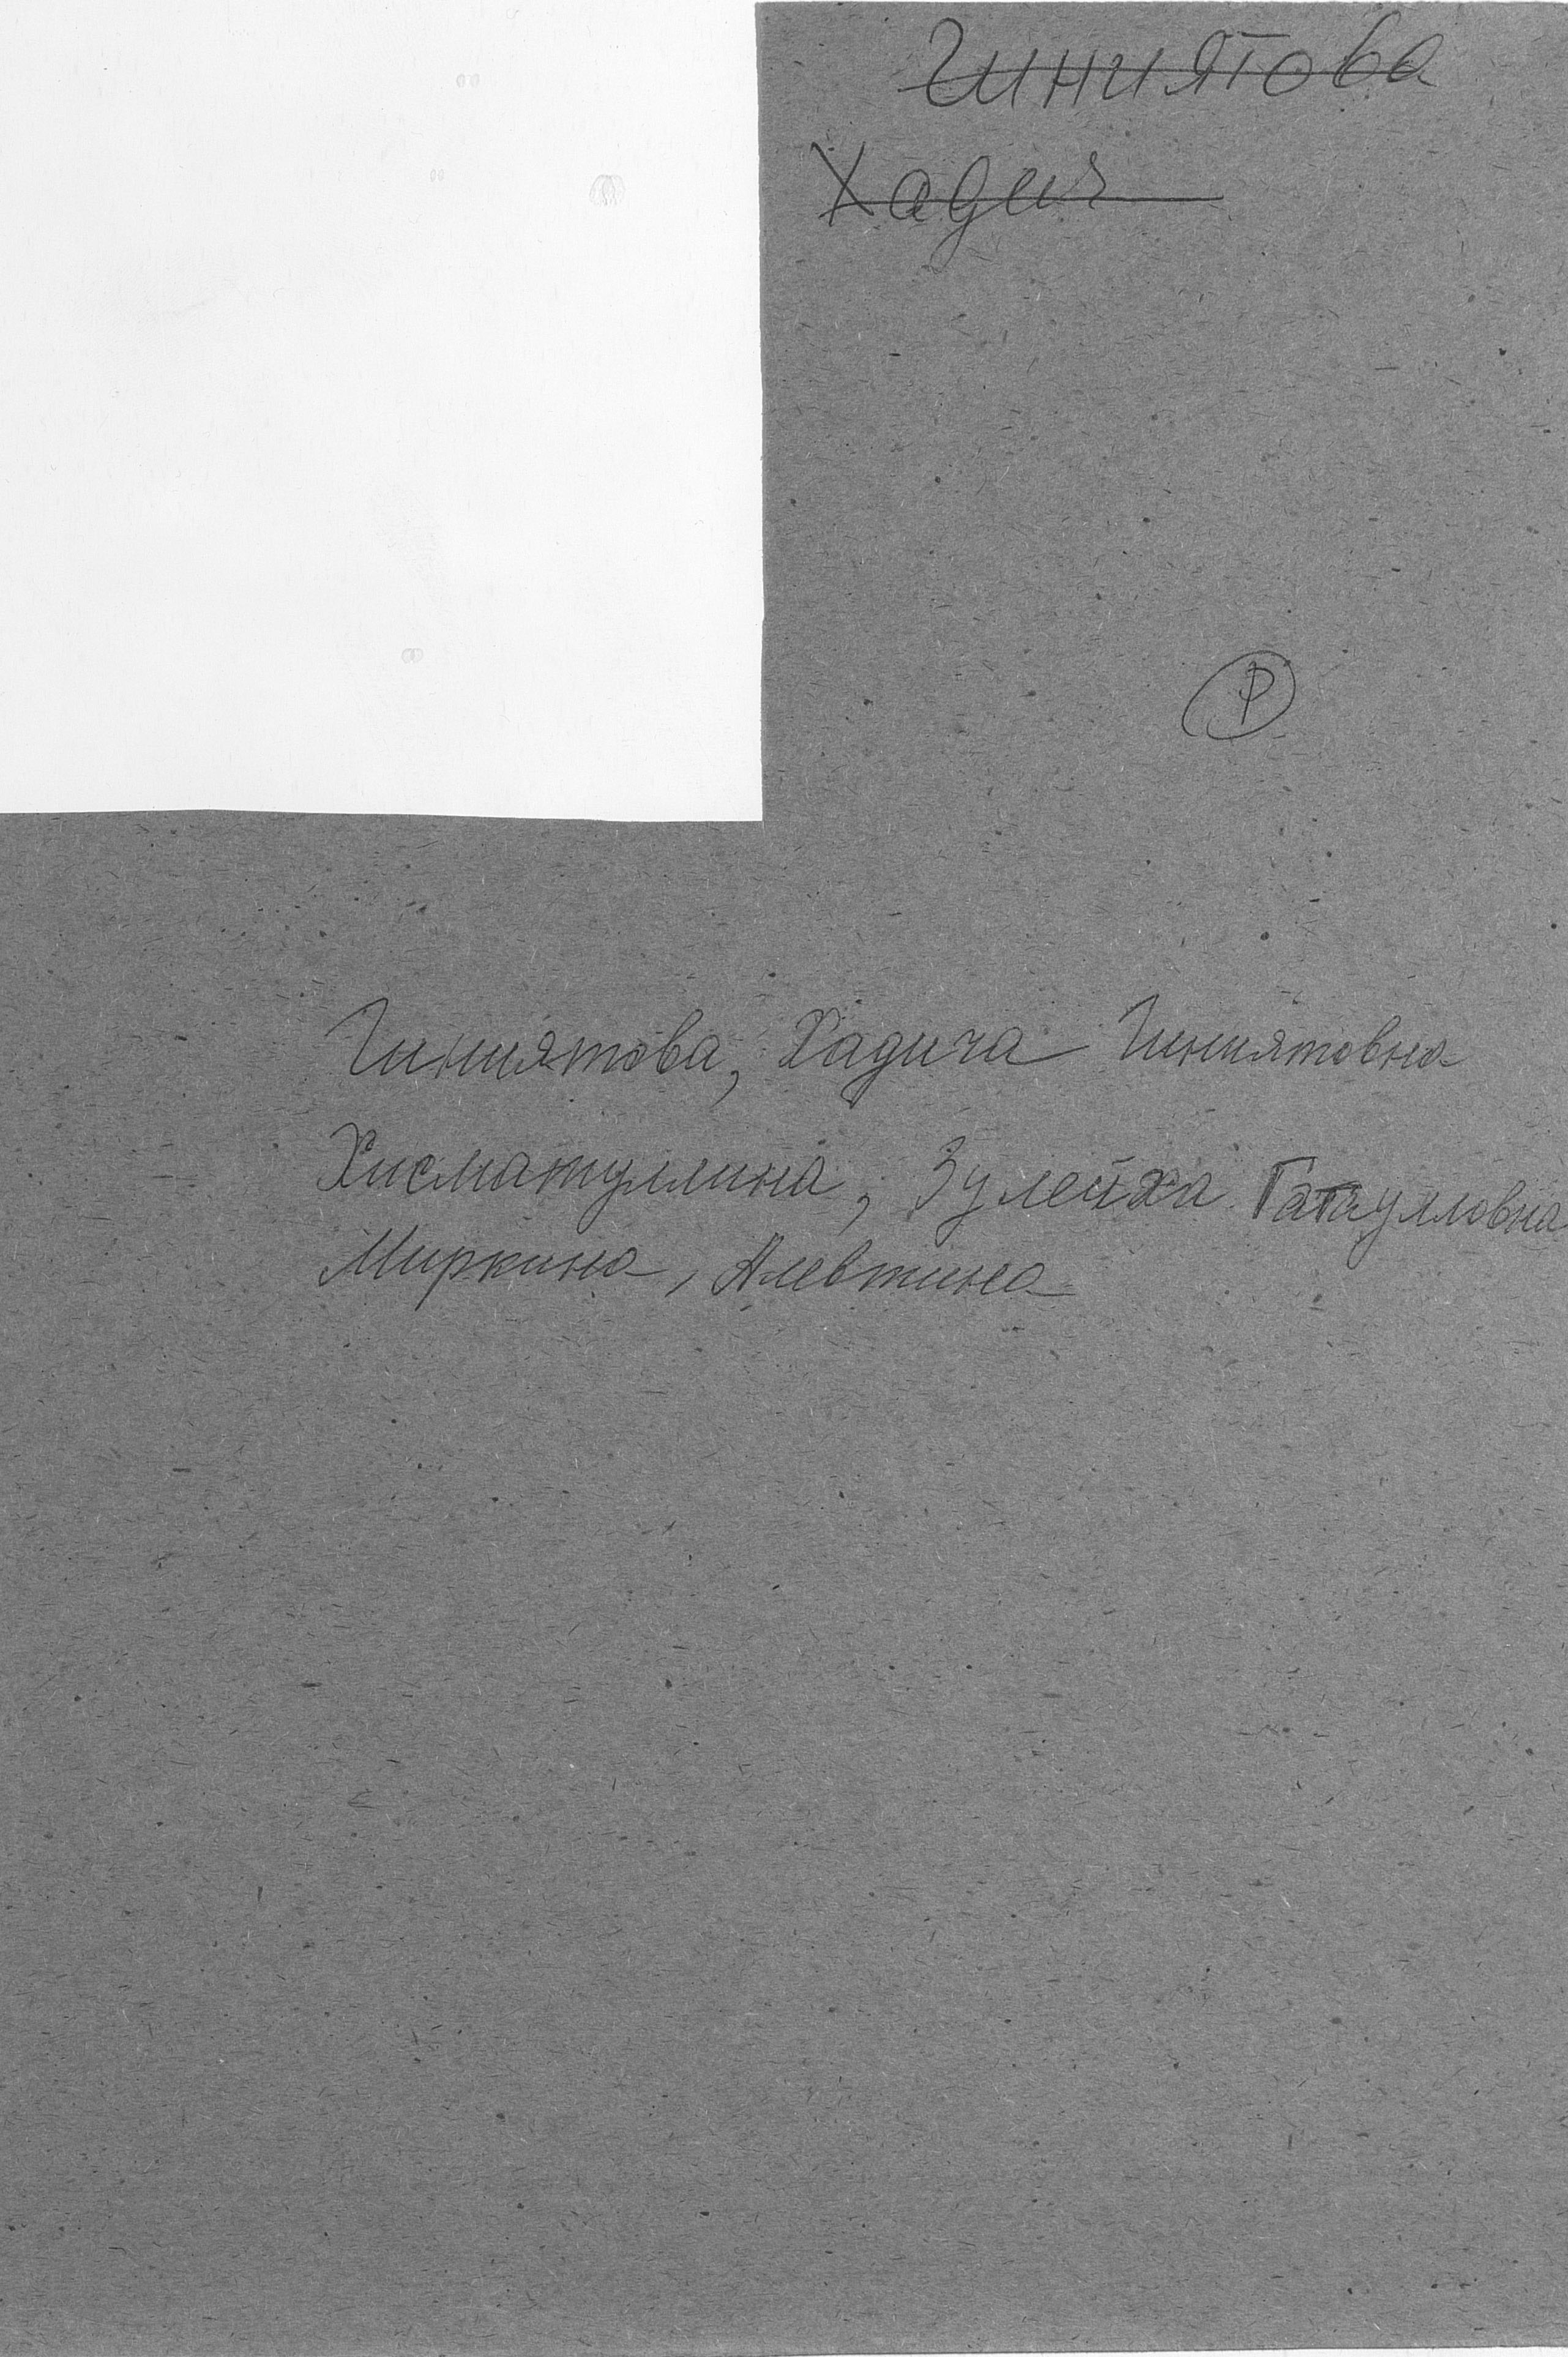 Гиниятова
Хадия
Р
Гиниятова, Хадича Гиниятовна
Хисматуллина, Зулейха Гатаулловна
Миркина, Алевтина